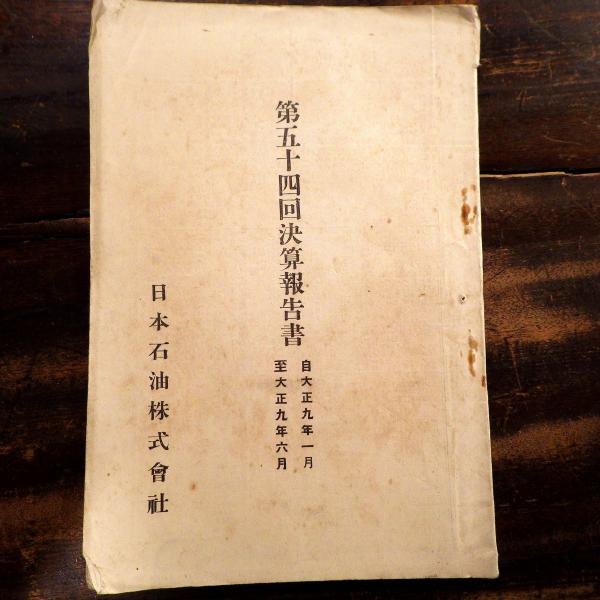 第五十四回決算報告書
自大正九年一月
至大正九年六月
日本石油株式會社